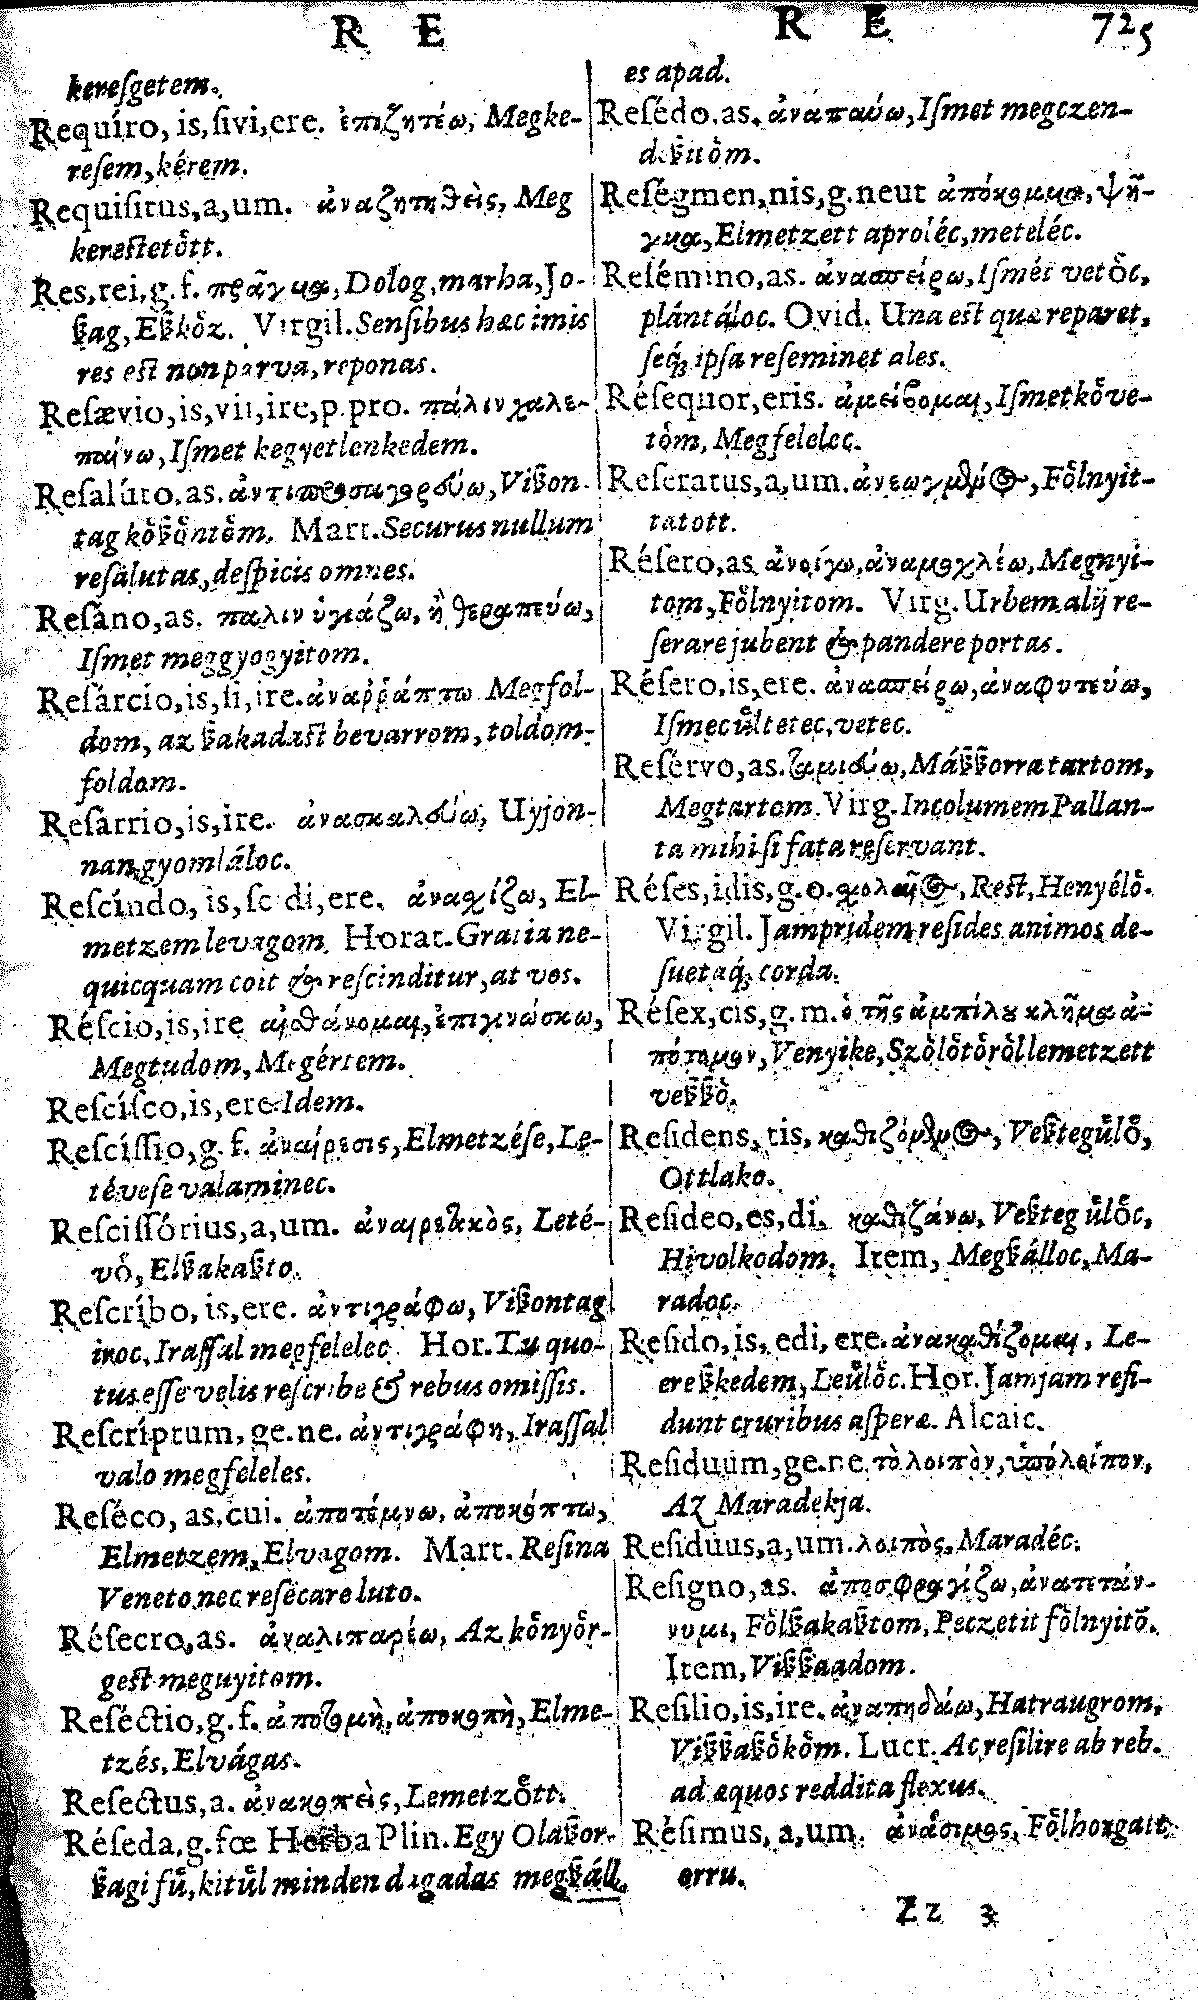 R E
R E 725
kereſgetem.
Requíro, is, ſivi, ere. ἐπιζητέω, Megke-
reſem, kérem.
Requiſitus, a, um. ἀναζητηθεὶς, Meg
kereſtetőtt.
Res, rei, g. f. πρᾶγμα, Dolog, marha, Jo-
ßag, Eßkőz. Virgil. Senſibus hæc imis
res eſt non parva, reponas.
Reſævio, is, vii, ire, p. pro. πάλιν χαλε-
παίνω, Iſmet kegyetlenkedem.
Reſalúto, as. ἀντιπροσαγορεύω, Vißon-
tag kőßőntőm. Mart. Securus nullum
reſalutas, deſpicis omnes.
Reſáno, as. παλιν ὑγιάζω, ἢ θεραπεύω,
Iſmet meggyogyitom.
Reſárcio, is, ſi, ire. ἀναῤῥάπτω Megfol-
dom, az ßakadaſt bevarrom, toldom-
foldom.
Reſarrio, is, ire. ἀνασκαλεύω, Uyjon-
nan gyomláloc.
Reſcíndo, is, ſcidi, ere. ἀναχίζω, El-
metzem levagom. Horat. Gratia ne-
quicquam coit & reſcinditur, at vos.
Réſcio, is, ire αἰσθάνομαι, ἐπιγινώσκω,
Megtudom, Megértem.
Reſcíſco, is, ere Idem.
Reſcíſſio, g. f. ἀναίρεσις, Elmetzéſe, Le-
tévese valaminec.
Reſciſſórius, a, um. ἀναιρετικὸς, Leté-
vő, Elßakaßto.
Reſcríbo, is, ere. ἀντιγράφω, Vißontag
iroc, Iraſſal megfelelec. Hor. Tu quo-
tus eſſe velis reſcribe & rebus omiſſis.
Reſcríptum, ge. ne. ἀντιγράφη, Iraſſal
valo megfeleles.
Reſéco, as, cui. ἀποτέμνω, ἀποκόπτω,
Elmetzem, Elvagom. Mart. Reſina
Veneto nec reſecare luto.
Réſecro, as. ἀναλιπαρέω, Az kőnyőr-
geſt meguyitom.
Reſéctio, g. f. ἀποτομὴ, ἀποκοπὴ, Elme-
tzés, Elvágas.
Reſectus, a. ἀνακοπεὶς, Lemetzőtt.
Réſeda, g. fœ Herba Plin. Egy Olaßor-
ßagi fű, kitűl minden dagadas megßáll,
es apad.
Reſédo, as. ἀναπαύω, Iſmet megczen-
deßitőm.
Reſégmen, nis, g. neut ἀπόκομμα, ψῆ-
γμα, Elmetzett aproléc, meteléc.
Reſémino, as. ἀνασπείρω, Iſmét vetőc,
plántáloc. Ovid. Una eſt quæ reparet,
ſeq́; ipſa reſeminet ales.
Réſequor, eris. ἀμείβομαι, Iſmet kőve-
tőm, Megfelelec.
Reſeratus, a, um. ἀνεωγμένος, Főlnyit-
tatott.
Réſero, as. ἀνοίγω, ἀναμοχλέω, Megnyi-
tom, Főlnyitom. Virg. Urbem alij re-
ſerare jubent & pandere portas.
Réſero, is, ere. ἀνασπείρω, ἀναφυτεύω,
Iſmec űltetec, vetec.
Reſérvo, as. ταμιεύω, Máßßorra tartom,
Megtartom. Virg. Incolumem Pallan-
ta mihi ſi fata reſervant.
Réſes, idis, g. o. χολαῖος, Reſt, Henyélő.
Virgil. Jampridem reſides animos de-
ſuetaq́; corda.
Réſex, cis, g. m. ὁ τῆς ἀμπέλου κλῆμα ἀ-
πότομον, Venyike, Szőlőtőről lemetzett
veßßő.
Reſidens, tis, καθιζόμενος, Veßtegűlő,
Ottlako.
Reſideo, es, di. καθιζάνω, Veßteg űlőc,
Hivolkodom. Item, Megßálloc, Ma-
radoc.
Reſido, is, edi, ere. ἀνακαθίζομαι, Le-
ereßkedem, Leűlőc. Hor. Jamjam reſi-
dunt cruribus aſperæ. Alcaic.
Reſiduum, ge. ne. τὸ λοιπὸν, ὑπόλοιπον,
Az Maradekja.
Reſiduus, a, um. λοιπὸς, Maradéc.
Reſigno, as. ἀποσφραγίζω, ἀναπετάν-
νυμι, Főlßakaßtom, Peczetit főlnyitō.
Item, Vißßaadom.
Reſilio, is, ire. ἀναπηδάω, Hatraugrom,
Vißßaßőkőm. Lucr. Ac reſilire ab reb.
ad æquos reddita flexus.
Réſimus, a, um. ἀνάσιμος, Főlhorgatt
orru.
Zz 3